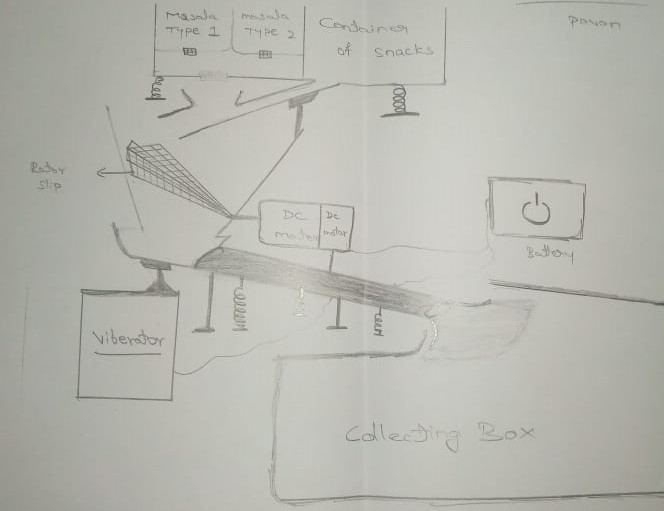 Masala
TYPE 1
masala
TYPE 2
Container
of snacks
pavan
Rotor
slip
DC
motor
DC
motor
Battery
Viberator
Collecting Box